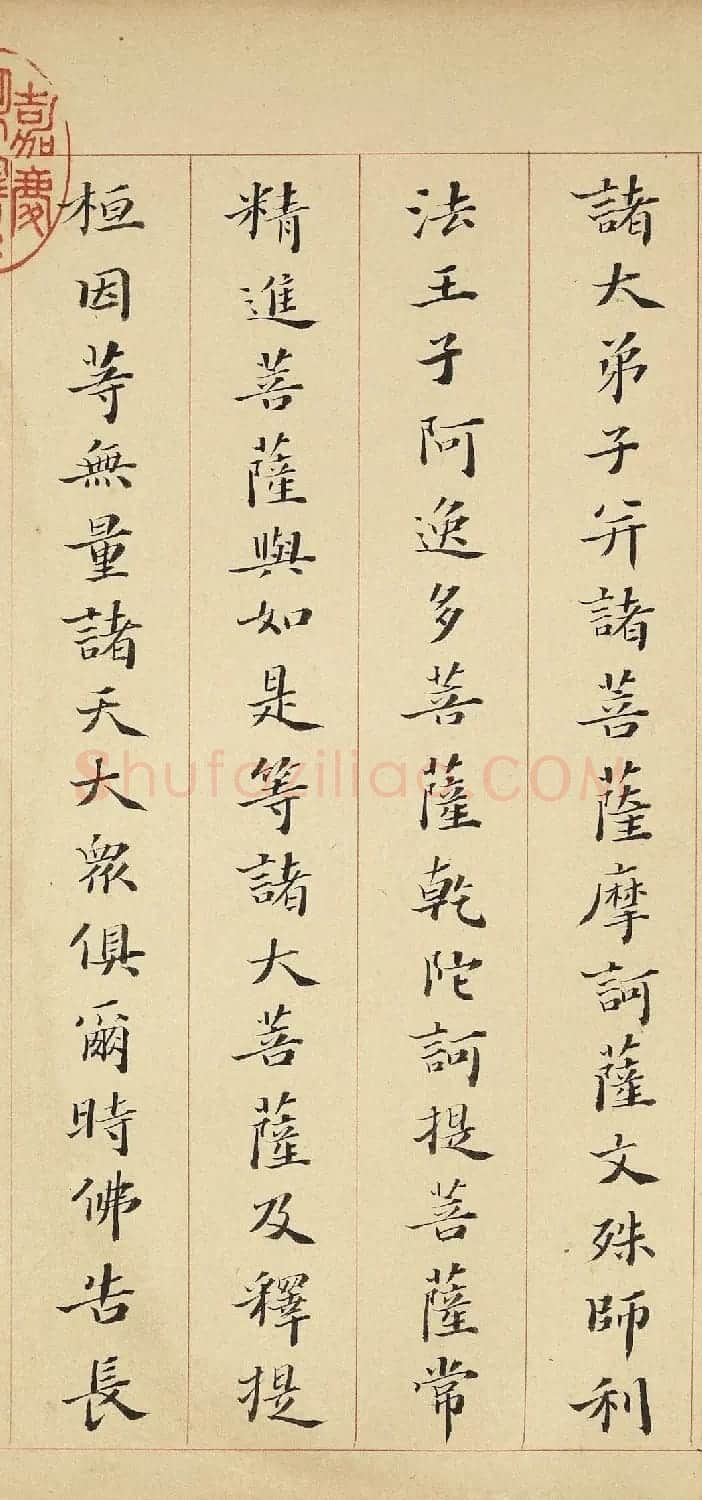 諸大弟子并諸菩薩摩訶薩文殊師利
法王子阿逸多菩薩乾陀訶提菩薩常
精進菩薩與如是等諸大菩薩及釋提
桓因等無量諸天大眾俱爾時佛告長
嘉慶
Shufaziliao.COM